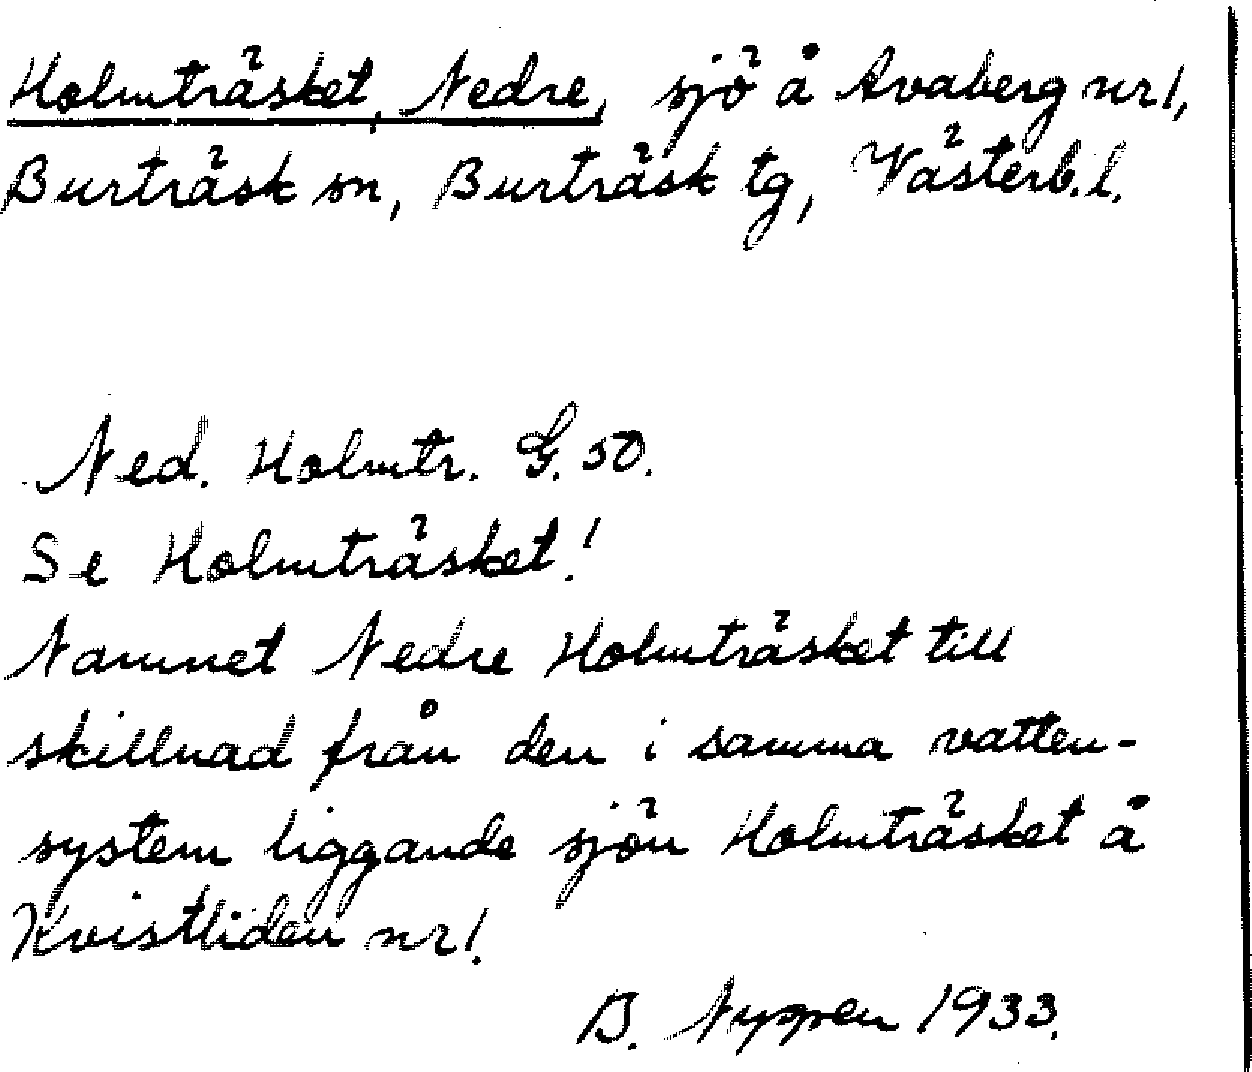 Holmträsket, Nedre, sjö å Avaberg nr 1,
Burträsk sn, Burträsk tg, Västerb. l.
Ned. Holmtr. G. 50.
Se Holmträsket!
Namnet Nedre Holmträsket till
skillnad från den i samma vatten-
system liggande sjön Holmträsket å
Kvistliden nr 1.
B. Nygren 1933.